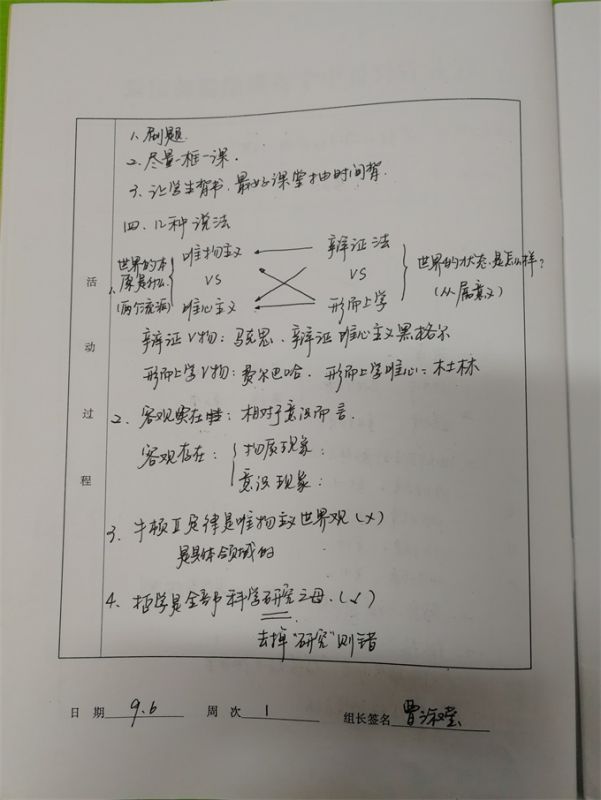 1、刷题.
2、尽量一框一课.
3、让学生背书,最好课堂抽时间背.
四、几种说法
1、世界的本原是什么.(两个流派) { 唯物主义 VS 唯心主义
辩证法 VS 形而上学 } 世界的状态是怎么样?(从属意义)
辩证V物:马克思、辩证唯心主义黑格尔
形而上学V物:费尔巴哈.形而上学唯心:朴土林
2、客观实在性:相对于意识而言.
客观存在:{ 物质现象:
意识现象:
3、牛顿Ⅱ定律是唯物主义世界观(×)
是具体领域的
4、哲学是全部科学研究之母.(√)
去掉“研究”则错
活动过程
日 期 9.6 周 次 1 组长签名 曹